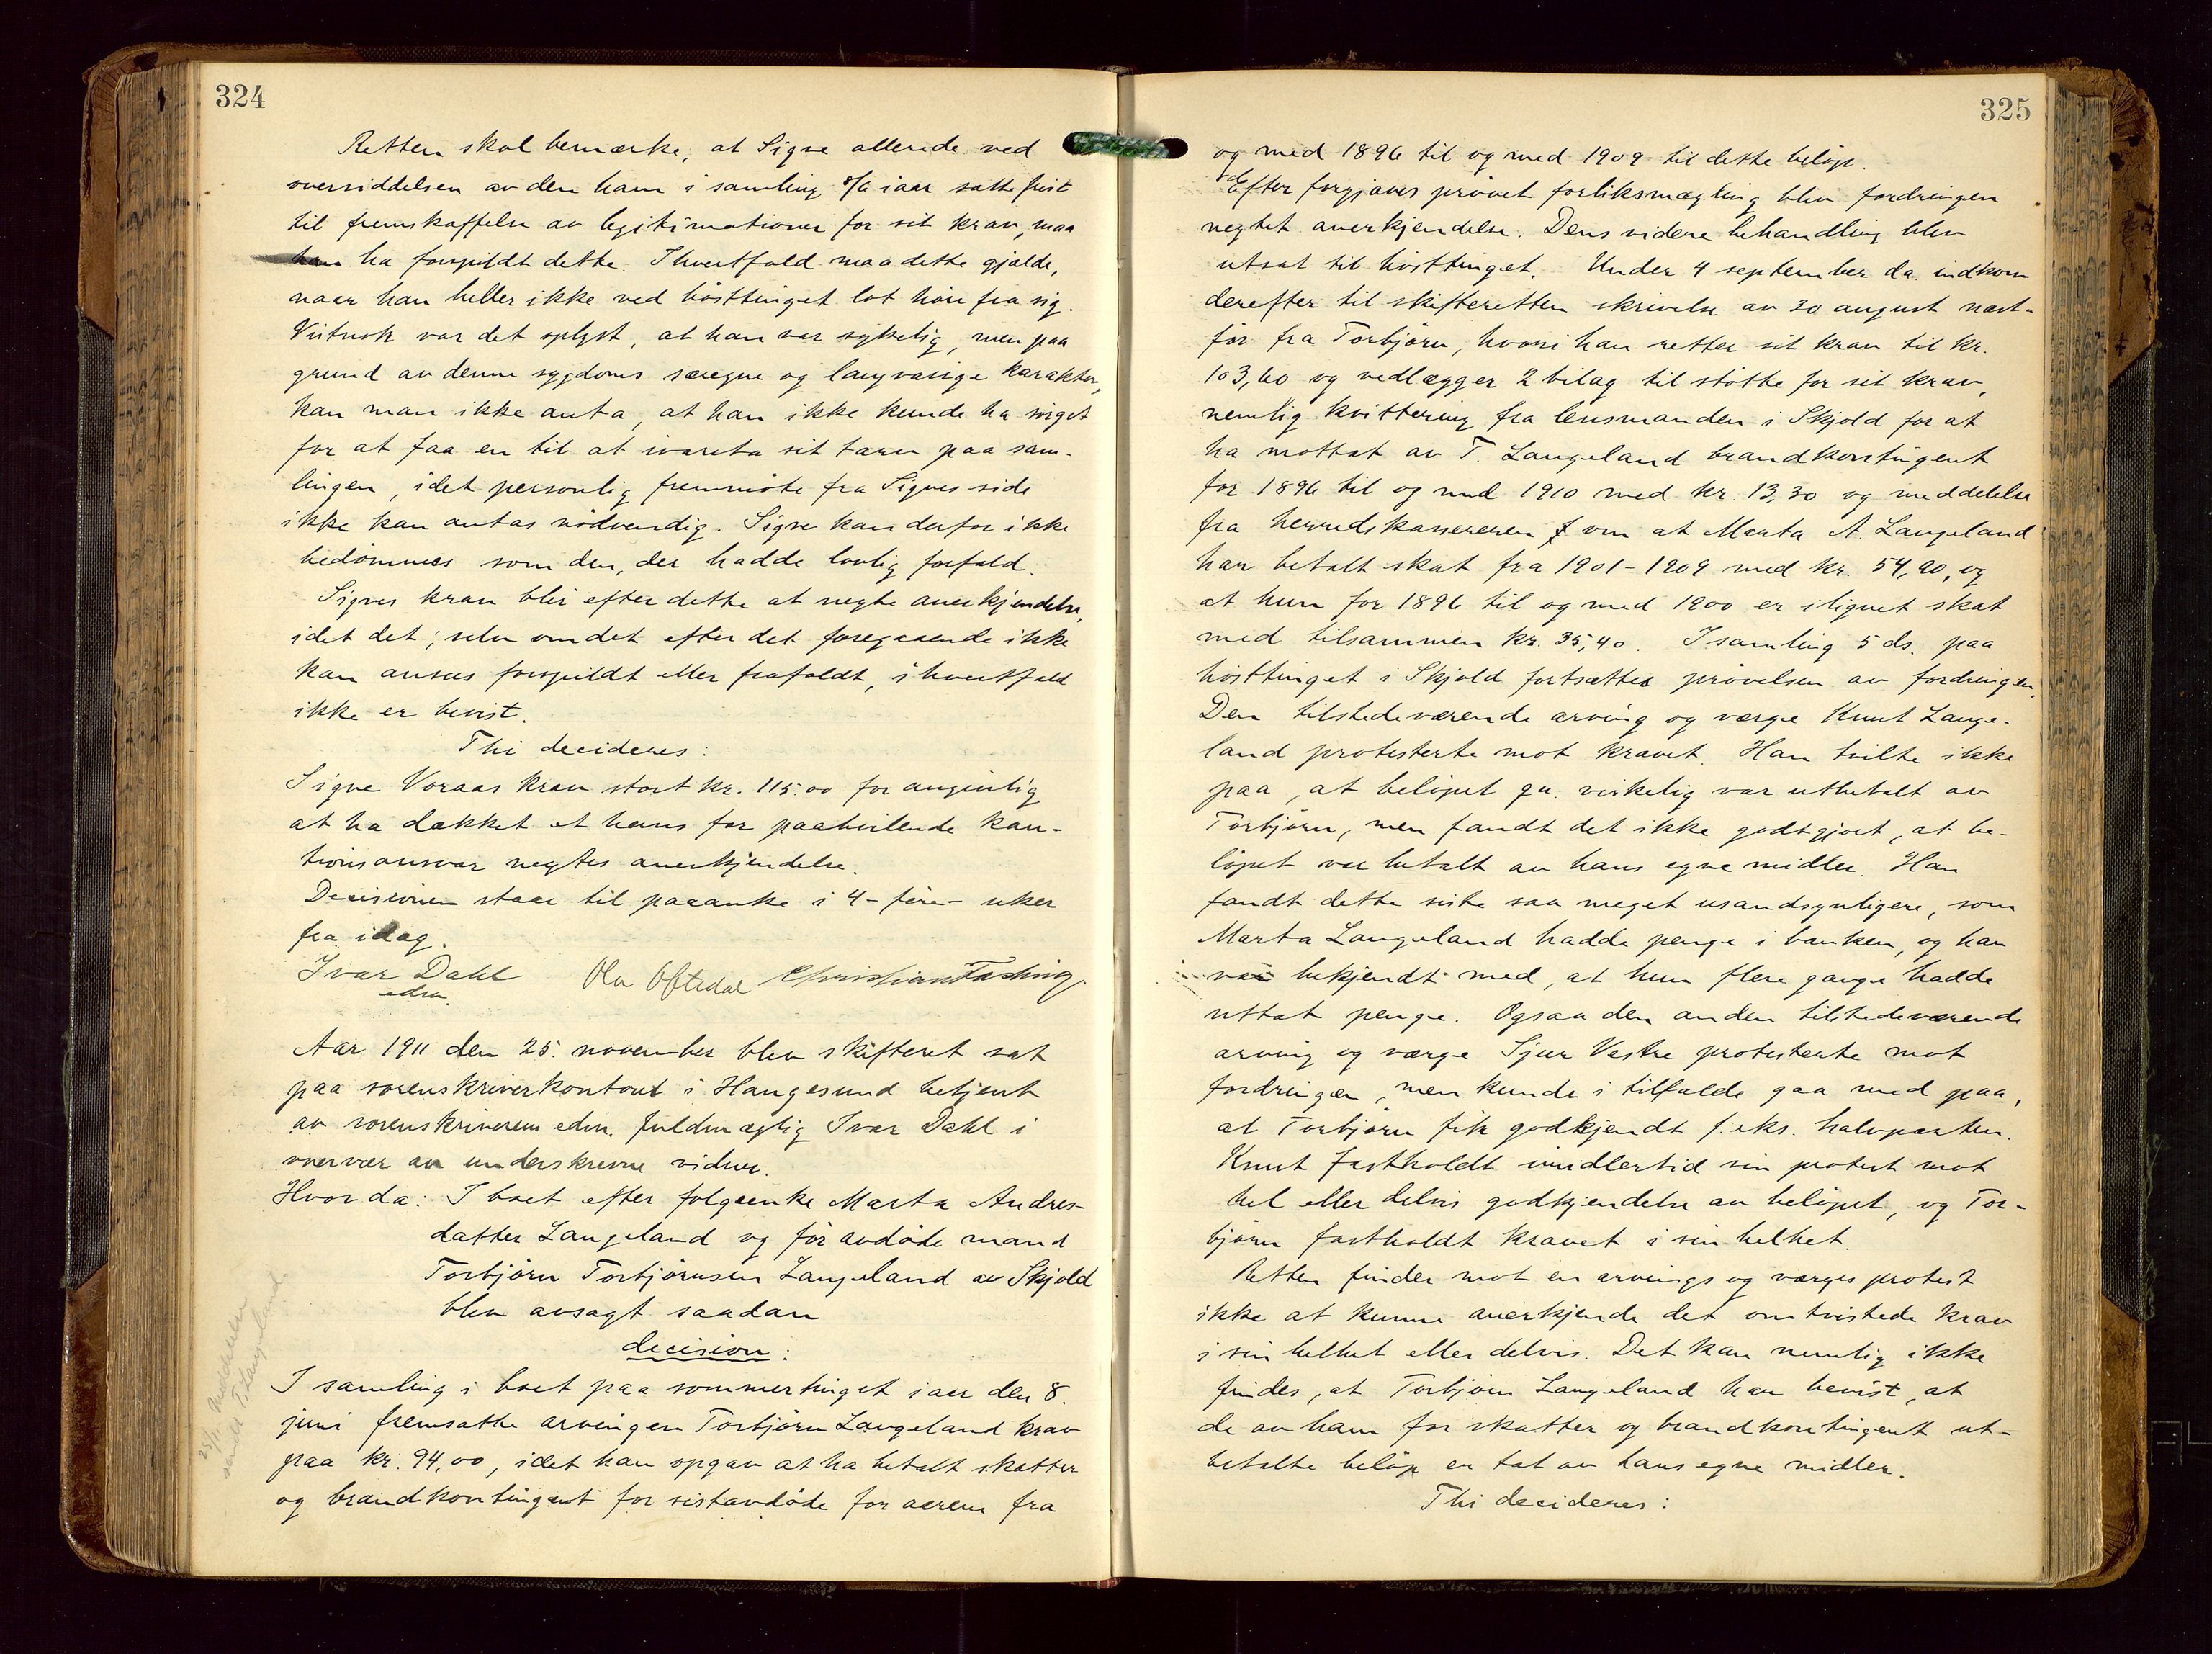 324
Retten skal bemærke, at Sigve allerede ved
oversiddelsen av den ham i samling 8/6 iaar satte frist
til fremskaffelse av legitimationer for sit krav, maa
ha forspildt dette. Ihvertfald maa dette gjælde,
naar han heller ikke ved hösttinget lot høre fra sig.
Vistnok var det oplyst, at han var sykelig, men paa
grund av denne sygdoms særegne og langvarige karakter,
kan man ikke anta, at han ikke kunde ha sörget
for at faa en til at ivareta sit tarv paa sam-
lingen, idet personlig fremmöte fra Sigves side
ikke kan antas nödvendig. Sigve kan derfor ikke
bedömmes som den, der hadde lovlig forfald.
Sigves krav blir efter dette at negte anerkjendelse,
idet det, selv om det efter det foregaaende ikke
kan ansees forspildt eller frafaldt, ihvertfald
ikke er bevist.
Thi decideres:
Sigve Voraas krav stort kr. 115.00 for angivelig
at ha dækket et hans far paahvilende kau-
tionsansvar negtes anerkjendelse.
Decisionen staar til paaanke i 4 - fire - uker
fra idag.
Ivar Dahl
edsv.
Ola Oftedal Christian Fasting
Aar 1911 den 25. november blev skifteret sat
paa sorenskriverkontoret i Haugesund betjent
av sorenskriverens edsv. fuldmægtig Ivar Dahl i
overvær av underskrevne vidner.
Hvor da: I boet efter følgeenke Marta Andres-
datter Langeland og før avdøde mand
Torbjørn Torbjørnsen Langeland av Skjold
blev avsagt saadan
decision:
I samling i boet paa sommertinget iaar den 8.
juni fremsatte arvingen Torbjörn Langeland krav
paa kr. 94,00, idet han opgav at ha betalt skatter
og brandkontingent for sistavdøde for aarene fra
25/11 Meddelelse
sendt T. Langeland
325
og med 1896 til og med 1909 til dette beløp.
Efter forgjæves prøvet forliksmægling blev fordringen
negtet anerkjendelse. Dens videre behandling blev
utsat til hösttinget. Under 4 september da. indkom
derefter til skifteretten skrivelse av 30 august næst-
før fra Torbjörn, hvori han retter sit krav til kr.
103,60 og vedlægger 2 bilag til støtte for sit krav,
nemlig kvittering fra lensmanden i Skjold for at
ha mottat av T. Langeland brandkontingent
for 1896 til og med 1910 med kr. 13,30 og meddelelse
fra herredskassereren om at Marta A. Langeland
har betalt skat fra 1901-1909 med kr. 54,90, og
at hun for 1896 til og med 1900 er ilignet skat
med tilsammen kr. 35,40. I samling 5 ds. paa
hösttinget i Skjold fortsættes prøvelsen av fordringen.
Den tilstedeværende arving og værge Knut Lange-
land protesterte mot kravet. Han tvilte ikke
paa, at beløpet qu. virkelig var utbetalt av
Torbjörn, men fandt det ikke godtgjort, at be-
løpet var betalt av hans egne midler. Han
fandt dette siste saa meget usandsynligere, som
Marta Langeland hadde penge i banken, og han
var bekjendt med, at hun flere gange hadde
uttat penge. Ogsaa den anden tilstedeværende
arving og værge Sjur Vestre protesterte mot
fordringen, men kunde i tilfælde gaa med paa,
at Torbjörn fik godkjendt f. eks. halvparten.
Knut fastholdt imidlertid sin protest mot
hel eller delvis godkjendelse av beløpet, og Tor-
bjørn fastholdt kravet i sin helhet.
Retten finder mot en arvings og værges protest
ikke at kunne anerkjende det omtvistede krav
i sin helhet eller delvis. Det kan nemlig ikke
findes, at Torbjörn Langeland har bevist, at
de av ham for skatter og brandkontingent ut-
betalte beløp er tat av hans egne midler.
Thi decideres: